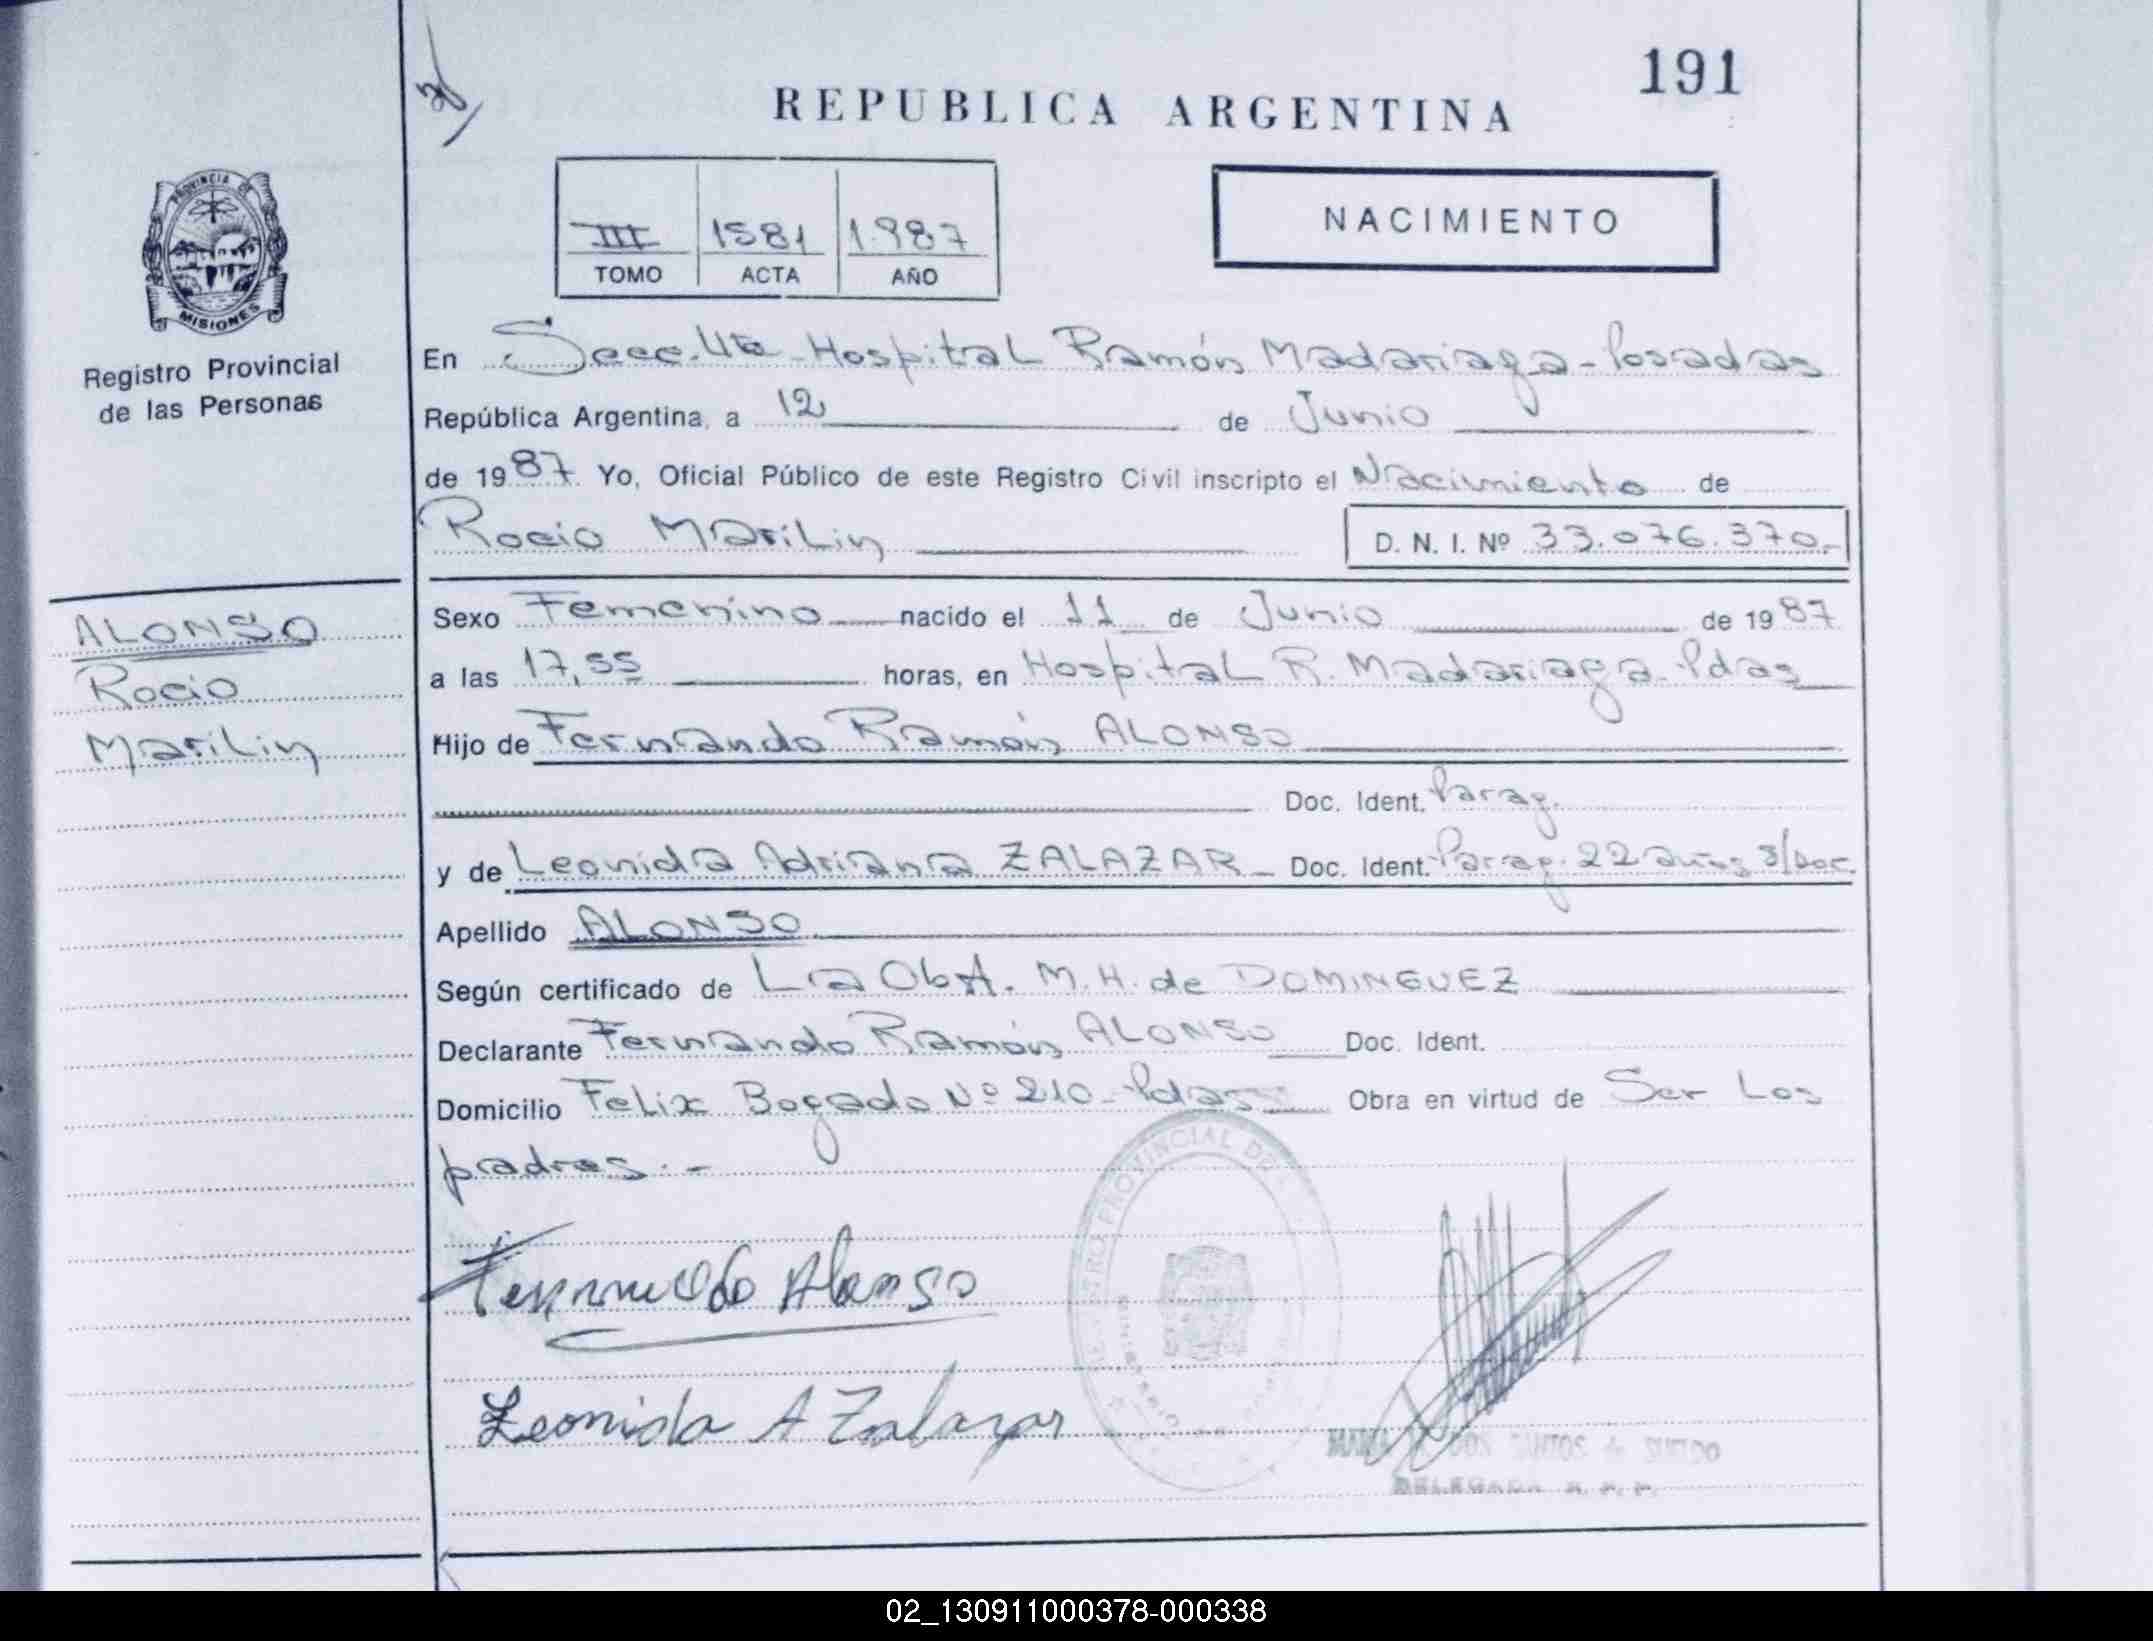 191
REPUBLICA ARGENTINA
PROVINCIA DE
MISIONES
Registro Provincial
de las Personas
III 1581 1.987
TOMO ACTA AÑO
NACIMIENTO
En Secc. 4ta - Hospital Ramón Madariaga - Posadas
República Argentina, a 12 de Junio
de 1987. Yo, Oficial Público de este Registro Civil inscripto el Nacimiento de
Rocio Marilin D. N. I. Nº 33.076.370.-
ALONSO
Rocio
Marilin
Sexo Femenino nacido el 11 de Junio de 1987
a las 17,55 horas, en Hospital R. Madariaga - Pdas
Hijo de Fernando Ramón ALONSO
Doc. Ident. Parag.
y de Leonida Adriana ZALAZAR - Doc. Ident. Parag. 22 años s/doc.
Apellido ALONSO
Según certificado de La Obst. M. H. de DOMINGUEZ
Declarante Fernando Ramón ALONSO Doc. Ident.
Domicilio Felix Bogado Nº 210 - Pdas Obra en virtud de Ser Los
padres. -
Fernando Alonso
Leonida A Zalazar
REGISTRO PROVINCIAL DE
DOS SANTOS de
DELEGADA R. P. P.
02_130911000378-000338